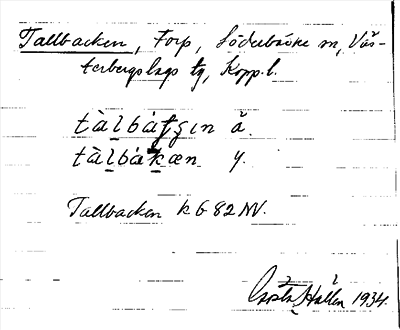 Tallbacken, Torp, Söderbärke sn, Väs-
terbergslags tg, Kopp. l.
tàlbátşın ä.
tàlbákæn y.
Tallbacken k G 82 NV.
Gösta Hallén 1934.